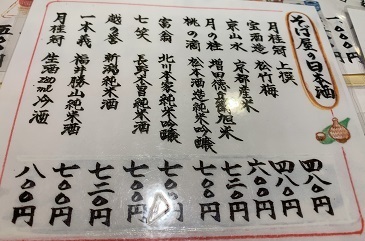 そば屋の日本酒
月桂冠 上撰 四八〇円
宝酒造 松竹梅 四八〇円
京山水 京都産米 六〇〇円
月の桂 増田徳兵衛 旭米 七五〇円
桃の滴 松本酒造純米吟醸 七〇〇円
富翁 北川本家純米吟醸 七〇〇円
七笑 長野木曽純米酒 七〇〇円
越乃誉 新潟純米酒 七五〇円
一本義 福井勝山純米酒 七〇〇円
月桂冠 生酒280ml冷酒 八〇〇円